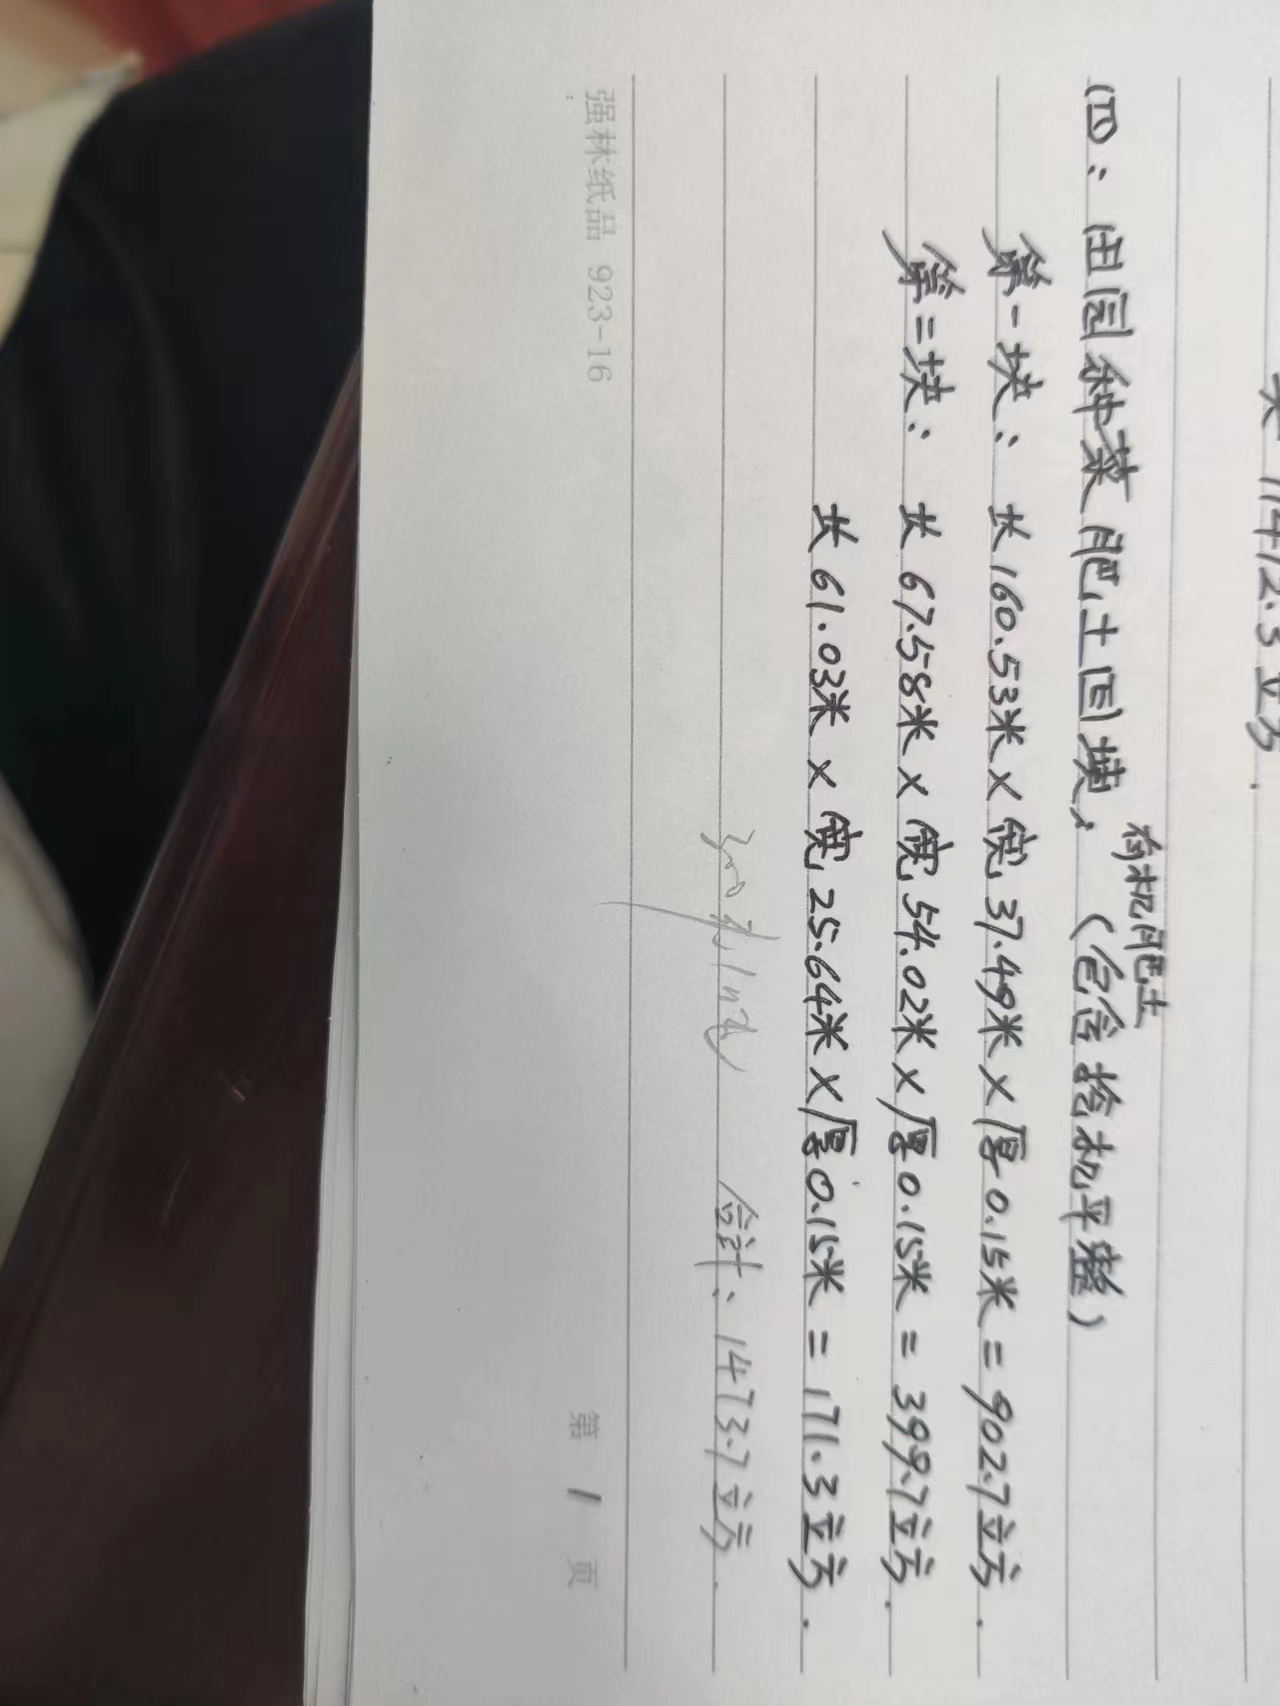 关 11412.5立方.
(四): 田园种菜肥土回填, (包含挖机平整)
有机肥土
第一块: 长160.53米×宽37.49米×厚0.15米=902.7立方.
第二块: 长67.58米×宽54.02米×厚0.15米=399.7立方.
长61.03米×宽25.64米×厚0.15米=171.3立方.
合计: 1473.7立方.
强林纸品 923-16 第 1 页